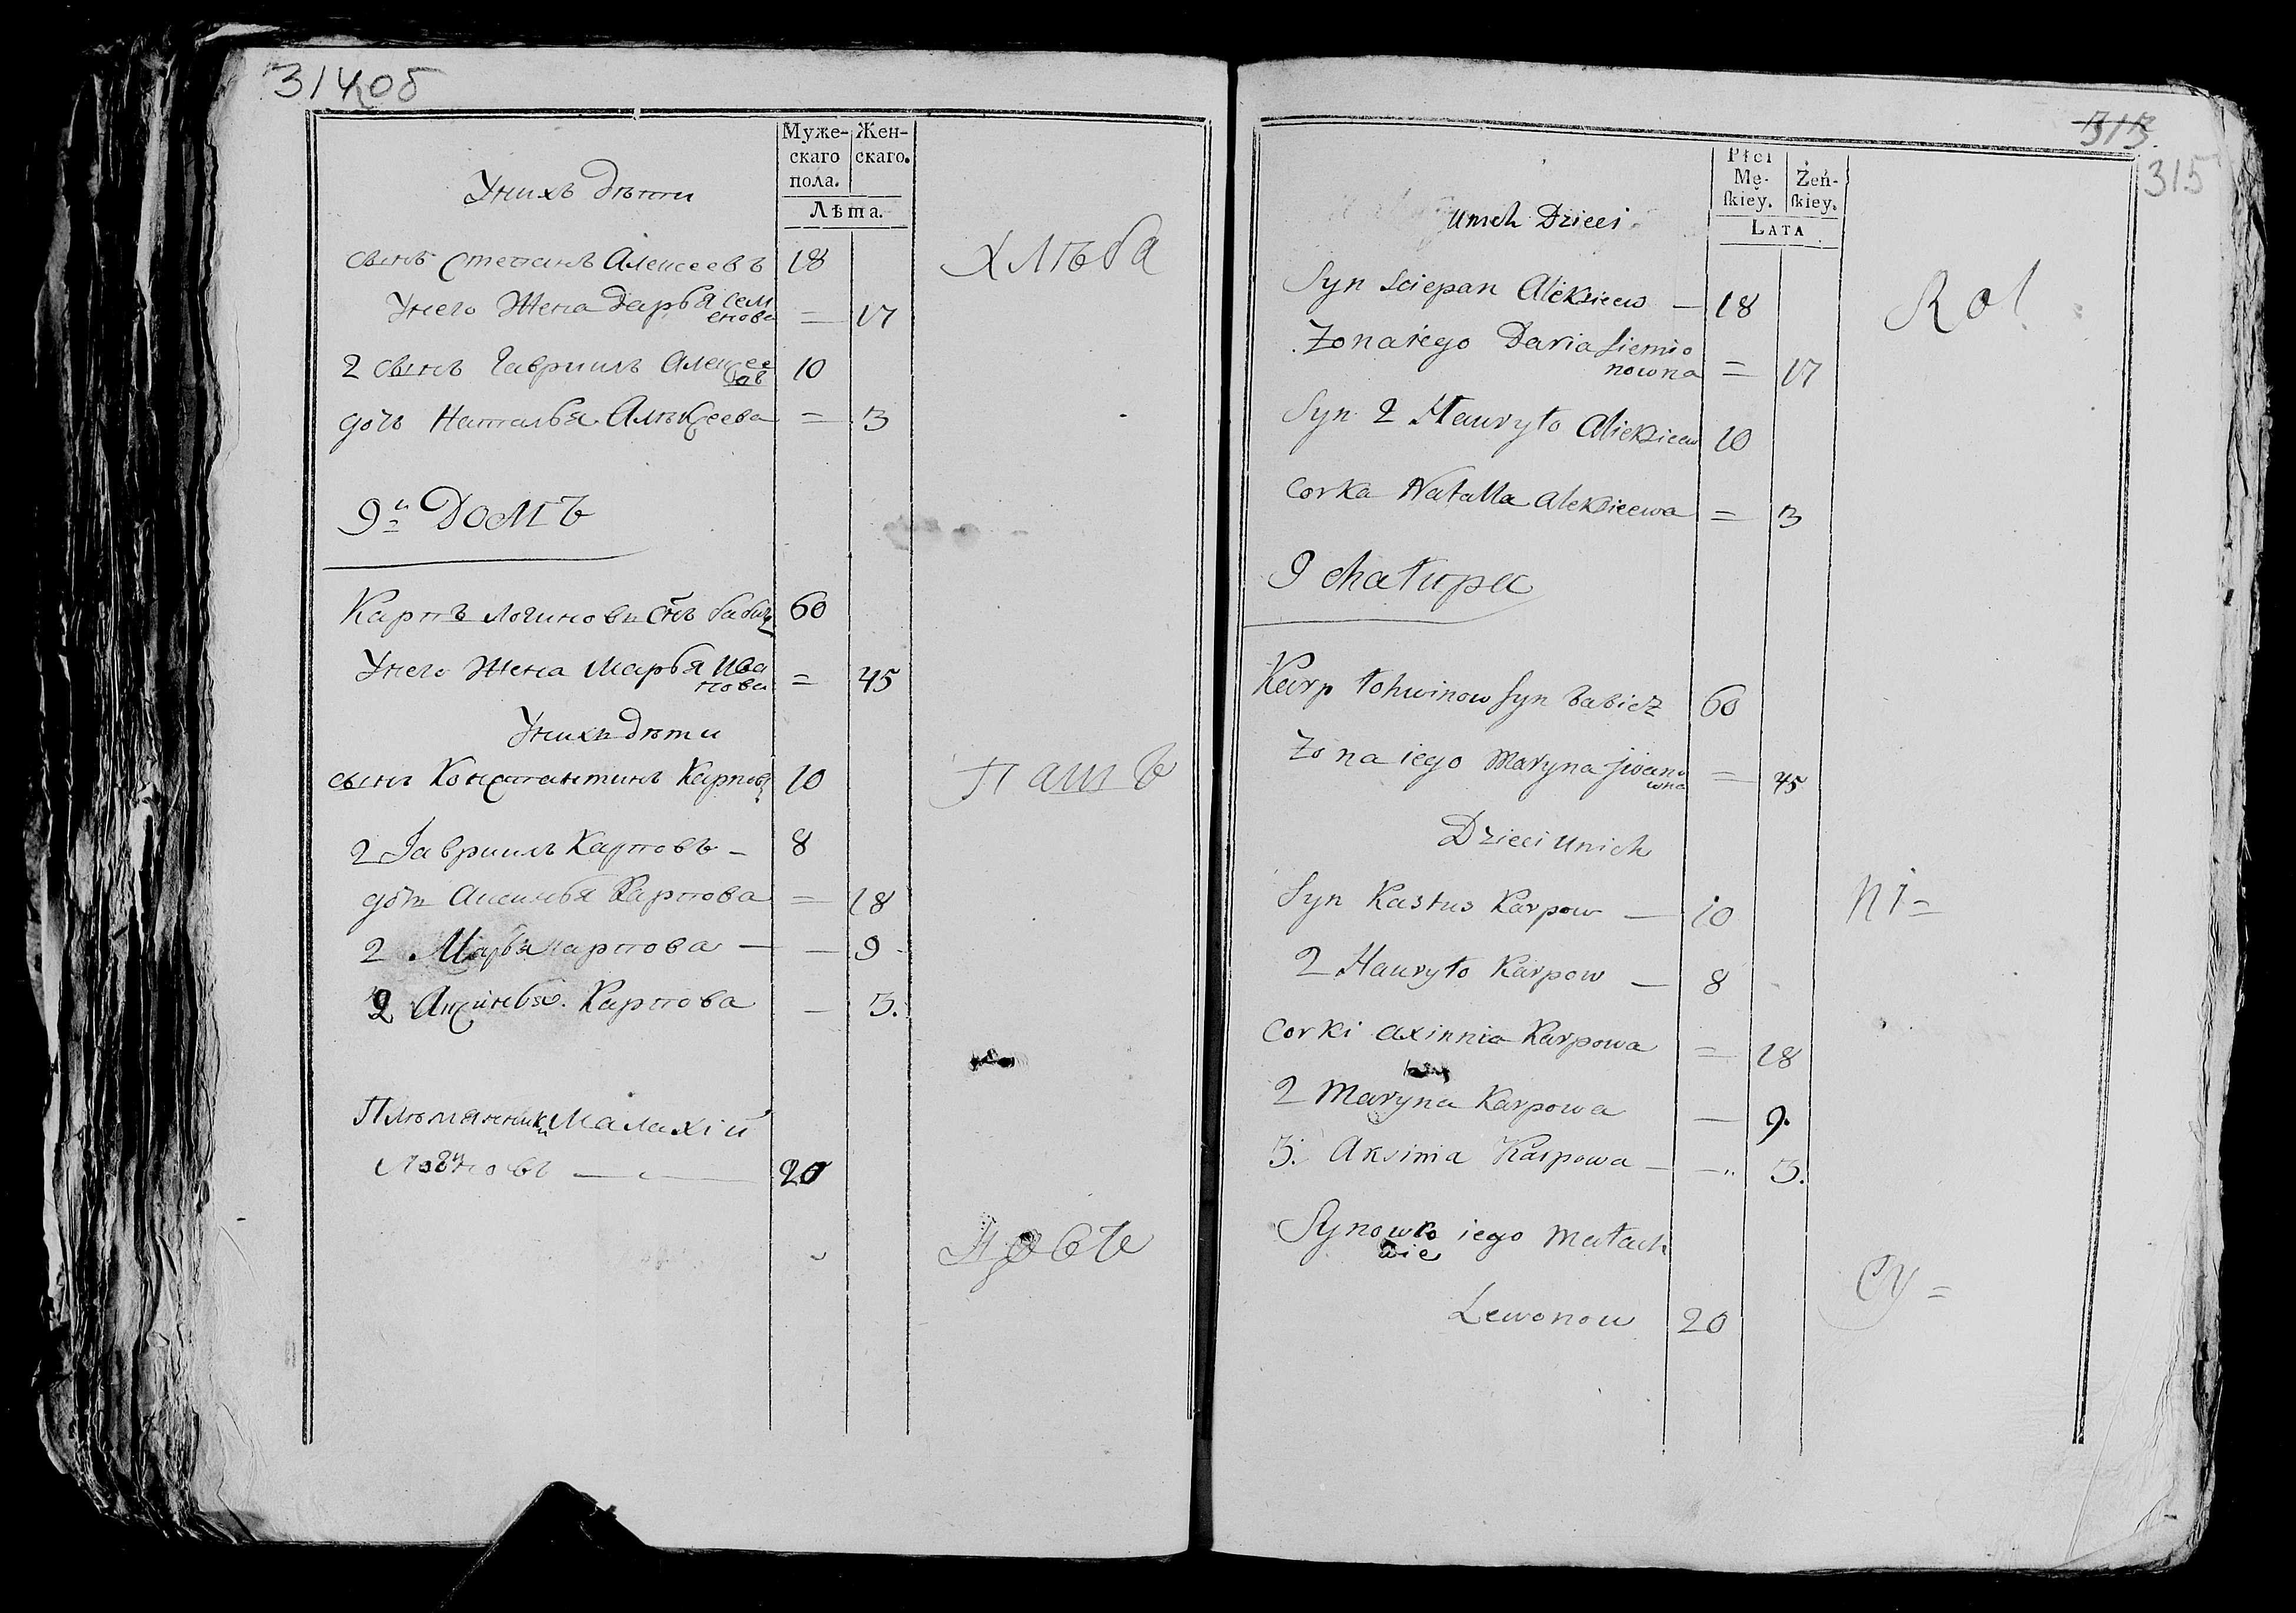 314об
Муже- Жен-
скаго скаго.
пола.
Лѣта.
У нихъ дѣти
сынъ Степанъ Алексеевъ 18
У него Жена Дарья Сем
енова = 17
2 сынъ Гавриилъ Алексее
въ 10
дочь Наталья Алексеева = 3
9й Домъ
Карпъ Логиновъ Снъ бабичъ 60
У него Жена Марья Ива
нова = 45
У нихъ дѣти
сынъ Константинъ Карповъ 10
2 Гавриилъ Карповъ – 8
дочь Аксинья Карпова = 18
2 Марья Карпова — — 9
2 Аксинья Карпова — 3.
Племянникъ Малахій
20
Хлѣба
Пашъ
313.
315
Płci
Mę- Żeń-
skiey. skiey.
LATA
u nich Dzieci
Syn Sciepan Alexieew — 18
Zona iego Daria Siemio
nowna = 17
Syn 2 Hauryło Alexieew 10
Corka Natalla Alexieewa = 3
9 Chałupa
Karp Łohwinow Syn Babicz 60
Zona iego Maryna Jwano
wna = 45
Dzieci u nich
Syn Kastus Karpow — 10
2 Hauryło Karpow — 8
Corki Axinnia Karpowa = 18
2 Maryna Karpowa — 9.
3. Aksinia Karpowa — — 3.
iego Małach
Lewonow 20
Rol
ni=
cy=